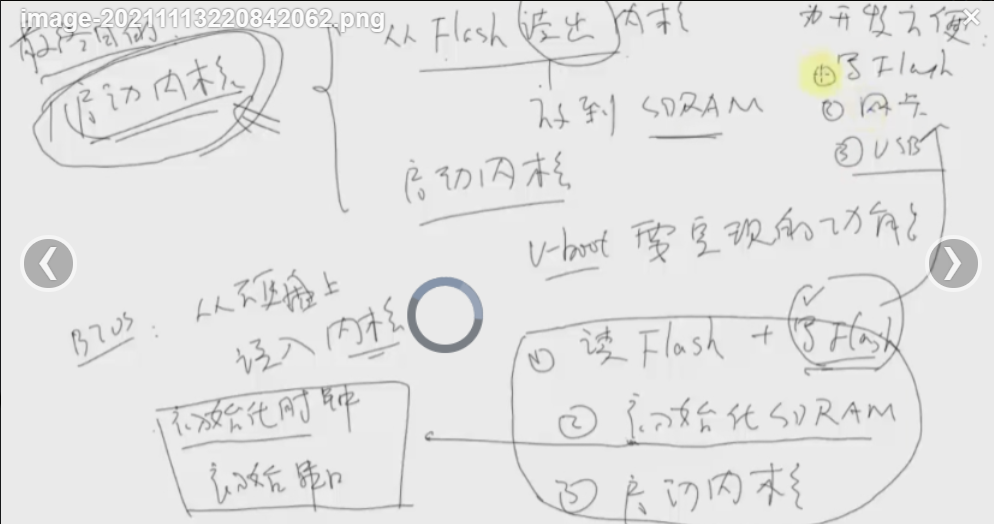 image-20211113220842062.png
最终目的:
启动内核
从 Flash 读出 内核
放到 SDRAM
启动内核
为开发方便:
① 写 Flash
② 网卡
③ USB
U-boot 要实现的功能
BIOS: 从硬盘上
读入 内核
初始化时钟
初始串口
① 读 Flash + 写 Flash
② 初始化 SDRAM
③ 启动内核